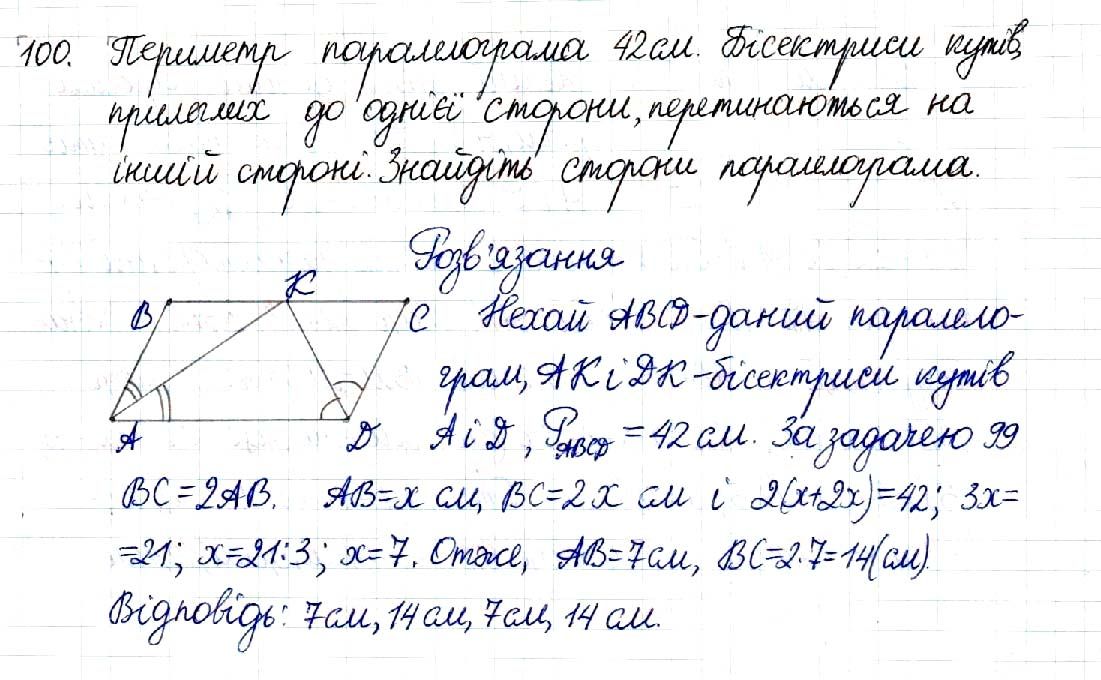 100. Периметр паралелограма 42 см. Бісектриси кутів,
прилеглих до однієї сторони, перетинаються на
іншій стороні. Знайдіть сторони паралелограма.
Розв'язання
B K C
A D
Нехай ABCD - даний паралело-
грам, AK і DK - бісектриси кутів
A і D, P ABCD = 42 см. За задачею 99
BC = 2AB. AB = x см, BC = 2x см і 2(x+2x) = 42; 3x =
= 21; x = 21:3; x = 7. Отже, AB = 7 см, BC = 2·7 = 14 (см).
Відповідь: 7 см, 14 см, 7 см, 14 см.